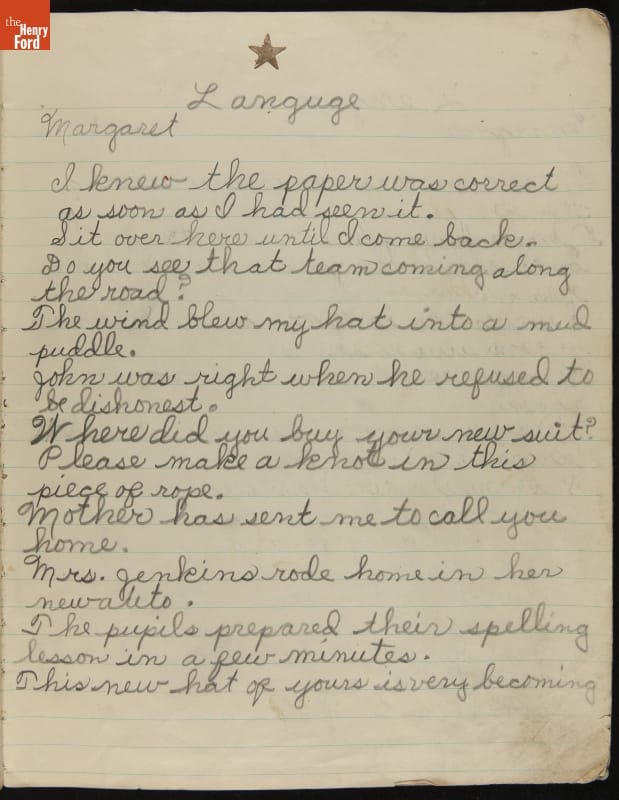 the
Henry
Ford
Languge
Margaret
I knew the paper was correct
as soon as I had seen it.
Sit over here until I come back.
Do you see that team coming along
the road?
The wind blew my hat into a mud
puddle.
John was right when he refused to
be dishonest.
Where did you buy your new suit?
Please make a knot in this
piece of rope.
Mother has sent me to call you
home.
Mrs. Jenkins rode home in her
new auto.
The pupils prepared their spelling
lesson in a few minutes.
This new hat of yours is very becoming